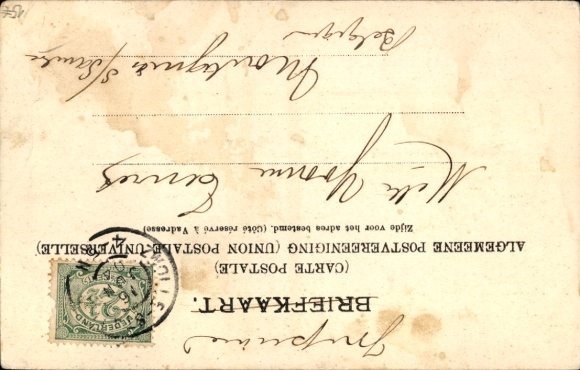 Imprimé
BRIEFKAART.
(CARTE POSTALE)
ALGEMEENE POSTVEREENIGING (UNION POSTALE UNIVERSELLE)
Zijde voor het adres bestemd. (Côté réservé à l'adresse)
NEDERLAND
2½
ZWOLLE
Melle Yvonne
Montignies s/Sambre
Belgique